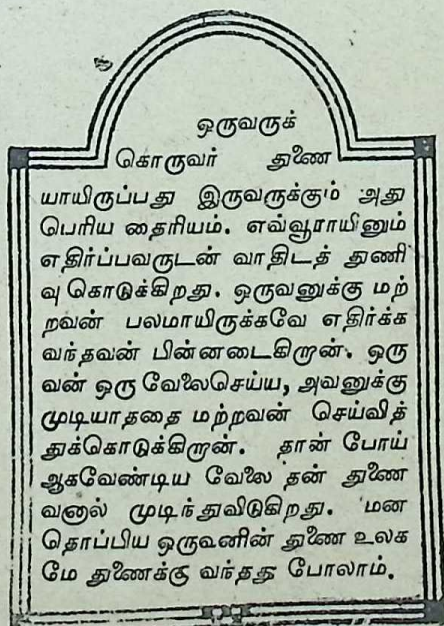 ஒருவருக்
கொருவர் துணை
யாயிருப்பது இருவருக்கும் அது
பெரிய தைரியம். எவ்வூராயினும்
எதிர்ப்பவருடன் வாதிடத் துணி
வு கொடுக்கிறது. ஒருவனுக்கு மற்
றவன் பலமாயிருக்கவே எதிர்க்க
வந்தவன் பின்னடைகிறான். ஒரு
வன் ஒரு வேலைசெய்ய, அவனுக்கு
முடியாததை மற்றவன் செய்வித்
துக்கொடுக்கிறான். தான் போய்
ஆகவேண்டிய வேலை தன் துணை
வனால் முடிந்துவிடுகிறது. மன
தொப்பிய ஒருவனின் துணை உலக
மே துணைக்கு வந்தது போலாம்.